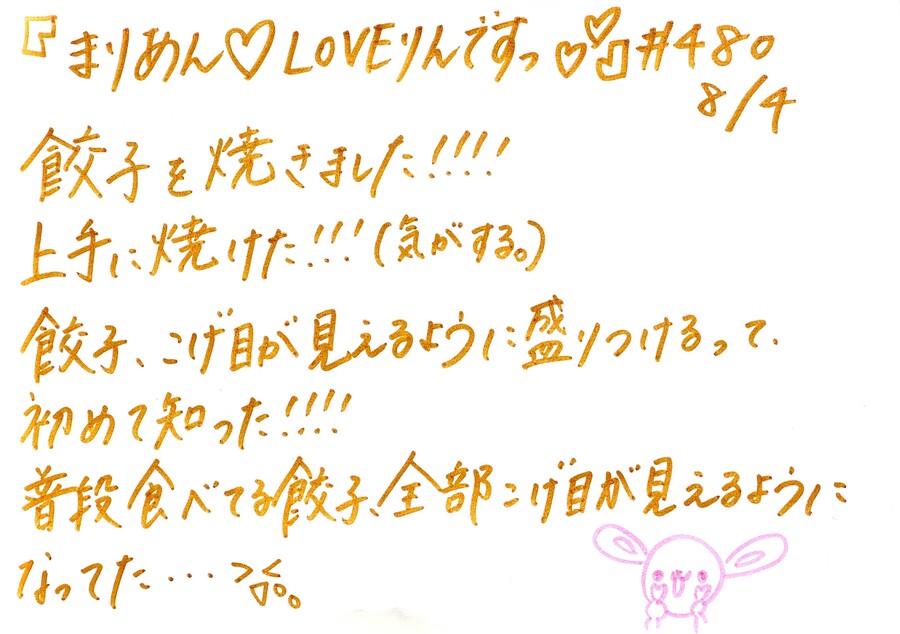 『まりあん♡LOVEりんですっ♡♡』#480
8/4
餃子を焼きました!!!!
上手に焼けた!!!(気がする。)
餃子、こげ目が見えるように盛りつけるって、
初めて知った!!!!
普段食べてる餃子、全部こげ目が見えるように
なってた…><。。